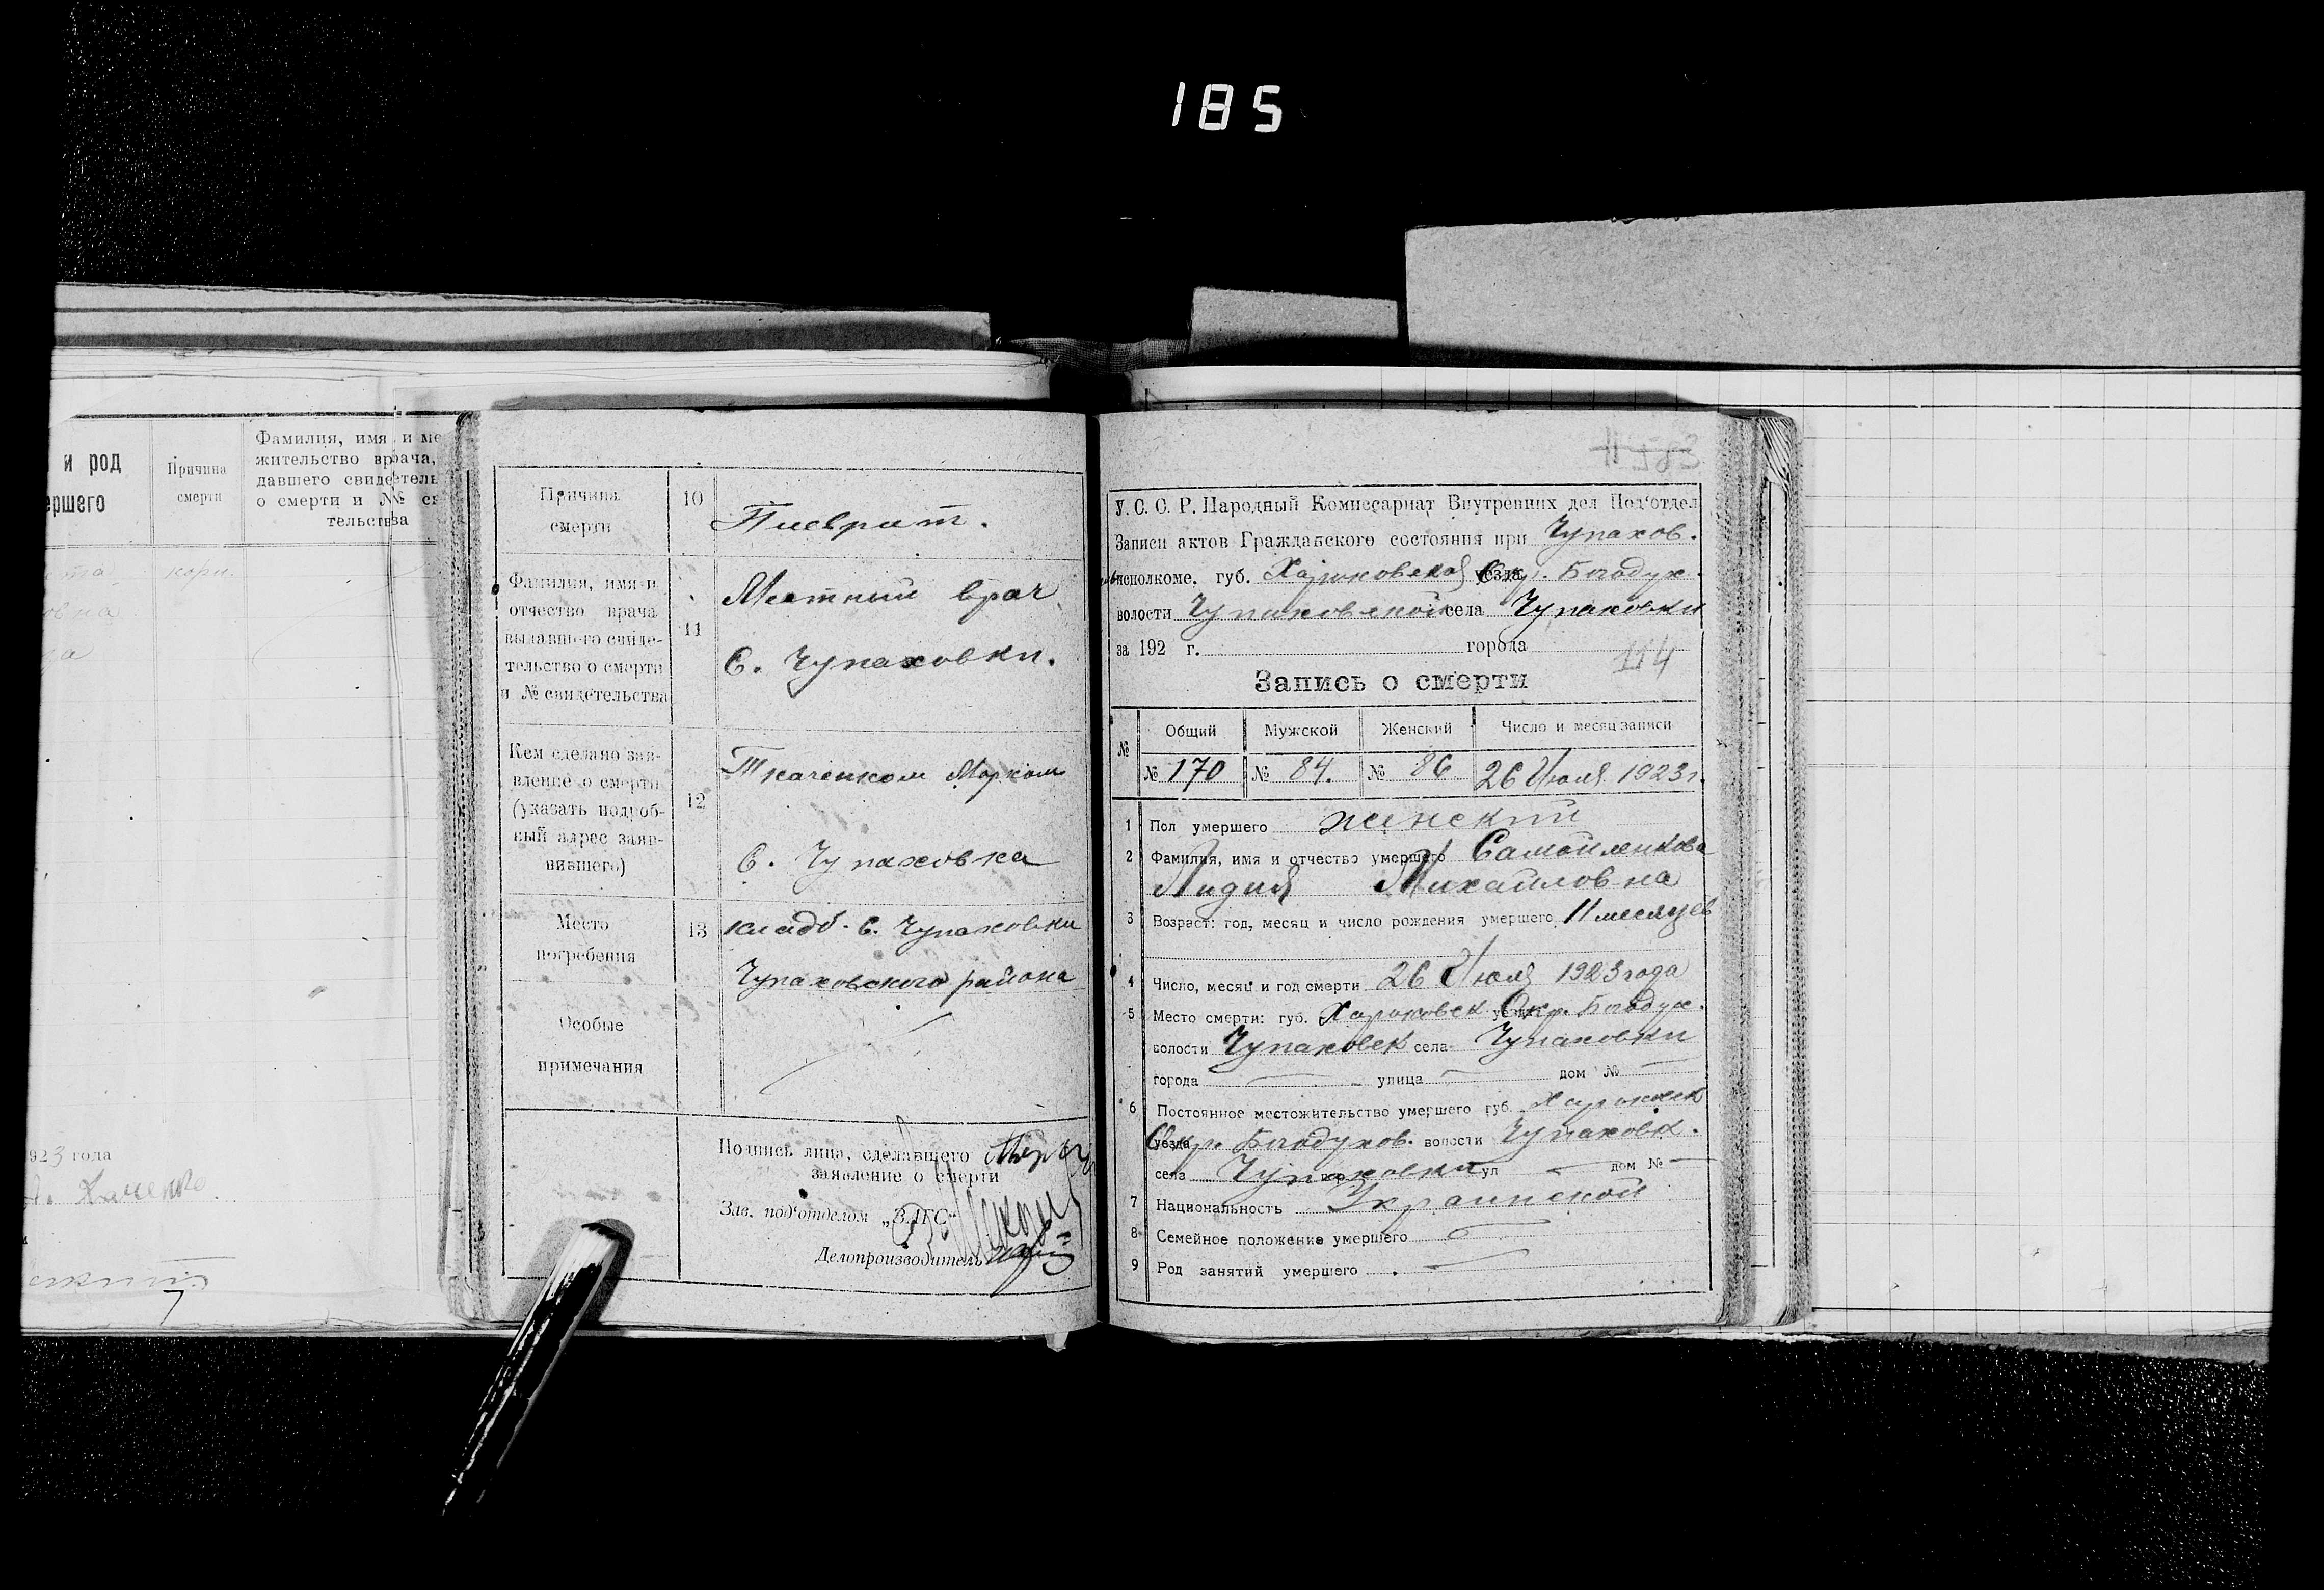 185
и род
ершего
Причина
смерти
Фамилия, имя и ме
жительство врача,
давшего свидетель
о смерти и №№ св
тельства
овна
1923 года
Причина
смерти
10
Плеврит.
Фамилия, имя и
отчество врача
выдавшего свиде-
тельство о смерти
и № свидетельства
11
Местный врач
С. Чупаховки.
Кем сделано зая-
вление о смерти
(указать подроб-
ный адрес заяв-
вившего)
12
Ткаченком Марком
С. Чупаховка
Место
погребения
13
кладб. С. Чупаховки
Чупаховского района
Особые
примечания
Подпись лица, сделавшего
заявление о смерти
Зав. под'отделом „ЗАГС"
Делопроизводитель
У. С. С. Р. Народный Комиссариат Внутренних дел Под'отдел
Записи актов Гражданского состояния при Чупахов.
исполкоме. губ. Харьковской уезда Окр. Богодух.
волости Чупаховской села Чупаховки
за 192 г. города
114
Запись о смерти
№ Общий Мужской Женский Число и месяц записи
№ 170 № 84. № 86 26 Июля 1923 г.
1 Пол умершего женский
2 Фамилия, имя и отчество умершего Самойленкова
Лидия Михайловна
3 Возраст: год, месяц и число рождения умершего 11 месяцев
4 Число, месяц и год смерти 26 Июля 1923 года
5 Место смерти: губ. Харьковск уезда Окр. Богодух.
волости Чупаховск села Чупаховки
города — улица — дом № —
6 Постоянное местожительство умершего губ. Харьковск
уезда Окр. Богодухов. волости Чупаховск.
села Чупаховки ул — дом № —
7 Национальность Украинской
8 Семейное положение умершего —
9 Род занятий умершего —